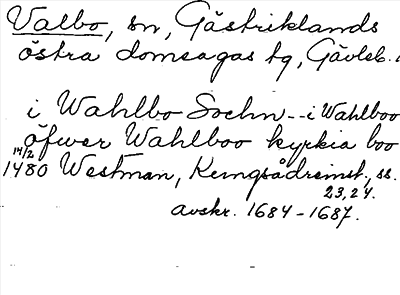 Valbo, sn, Gästriklands
östra domsagas tg, Gävleb. l
i Wahlbo Sochn -- i Wahlboo
öfwer Wahlboo kyrkia boo
14/2
1480 Westman, Kungsådreinst., ss.
23, 24.
avskr. 1684-1687.